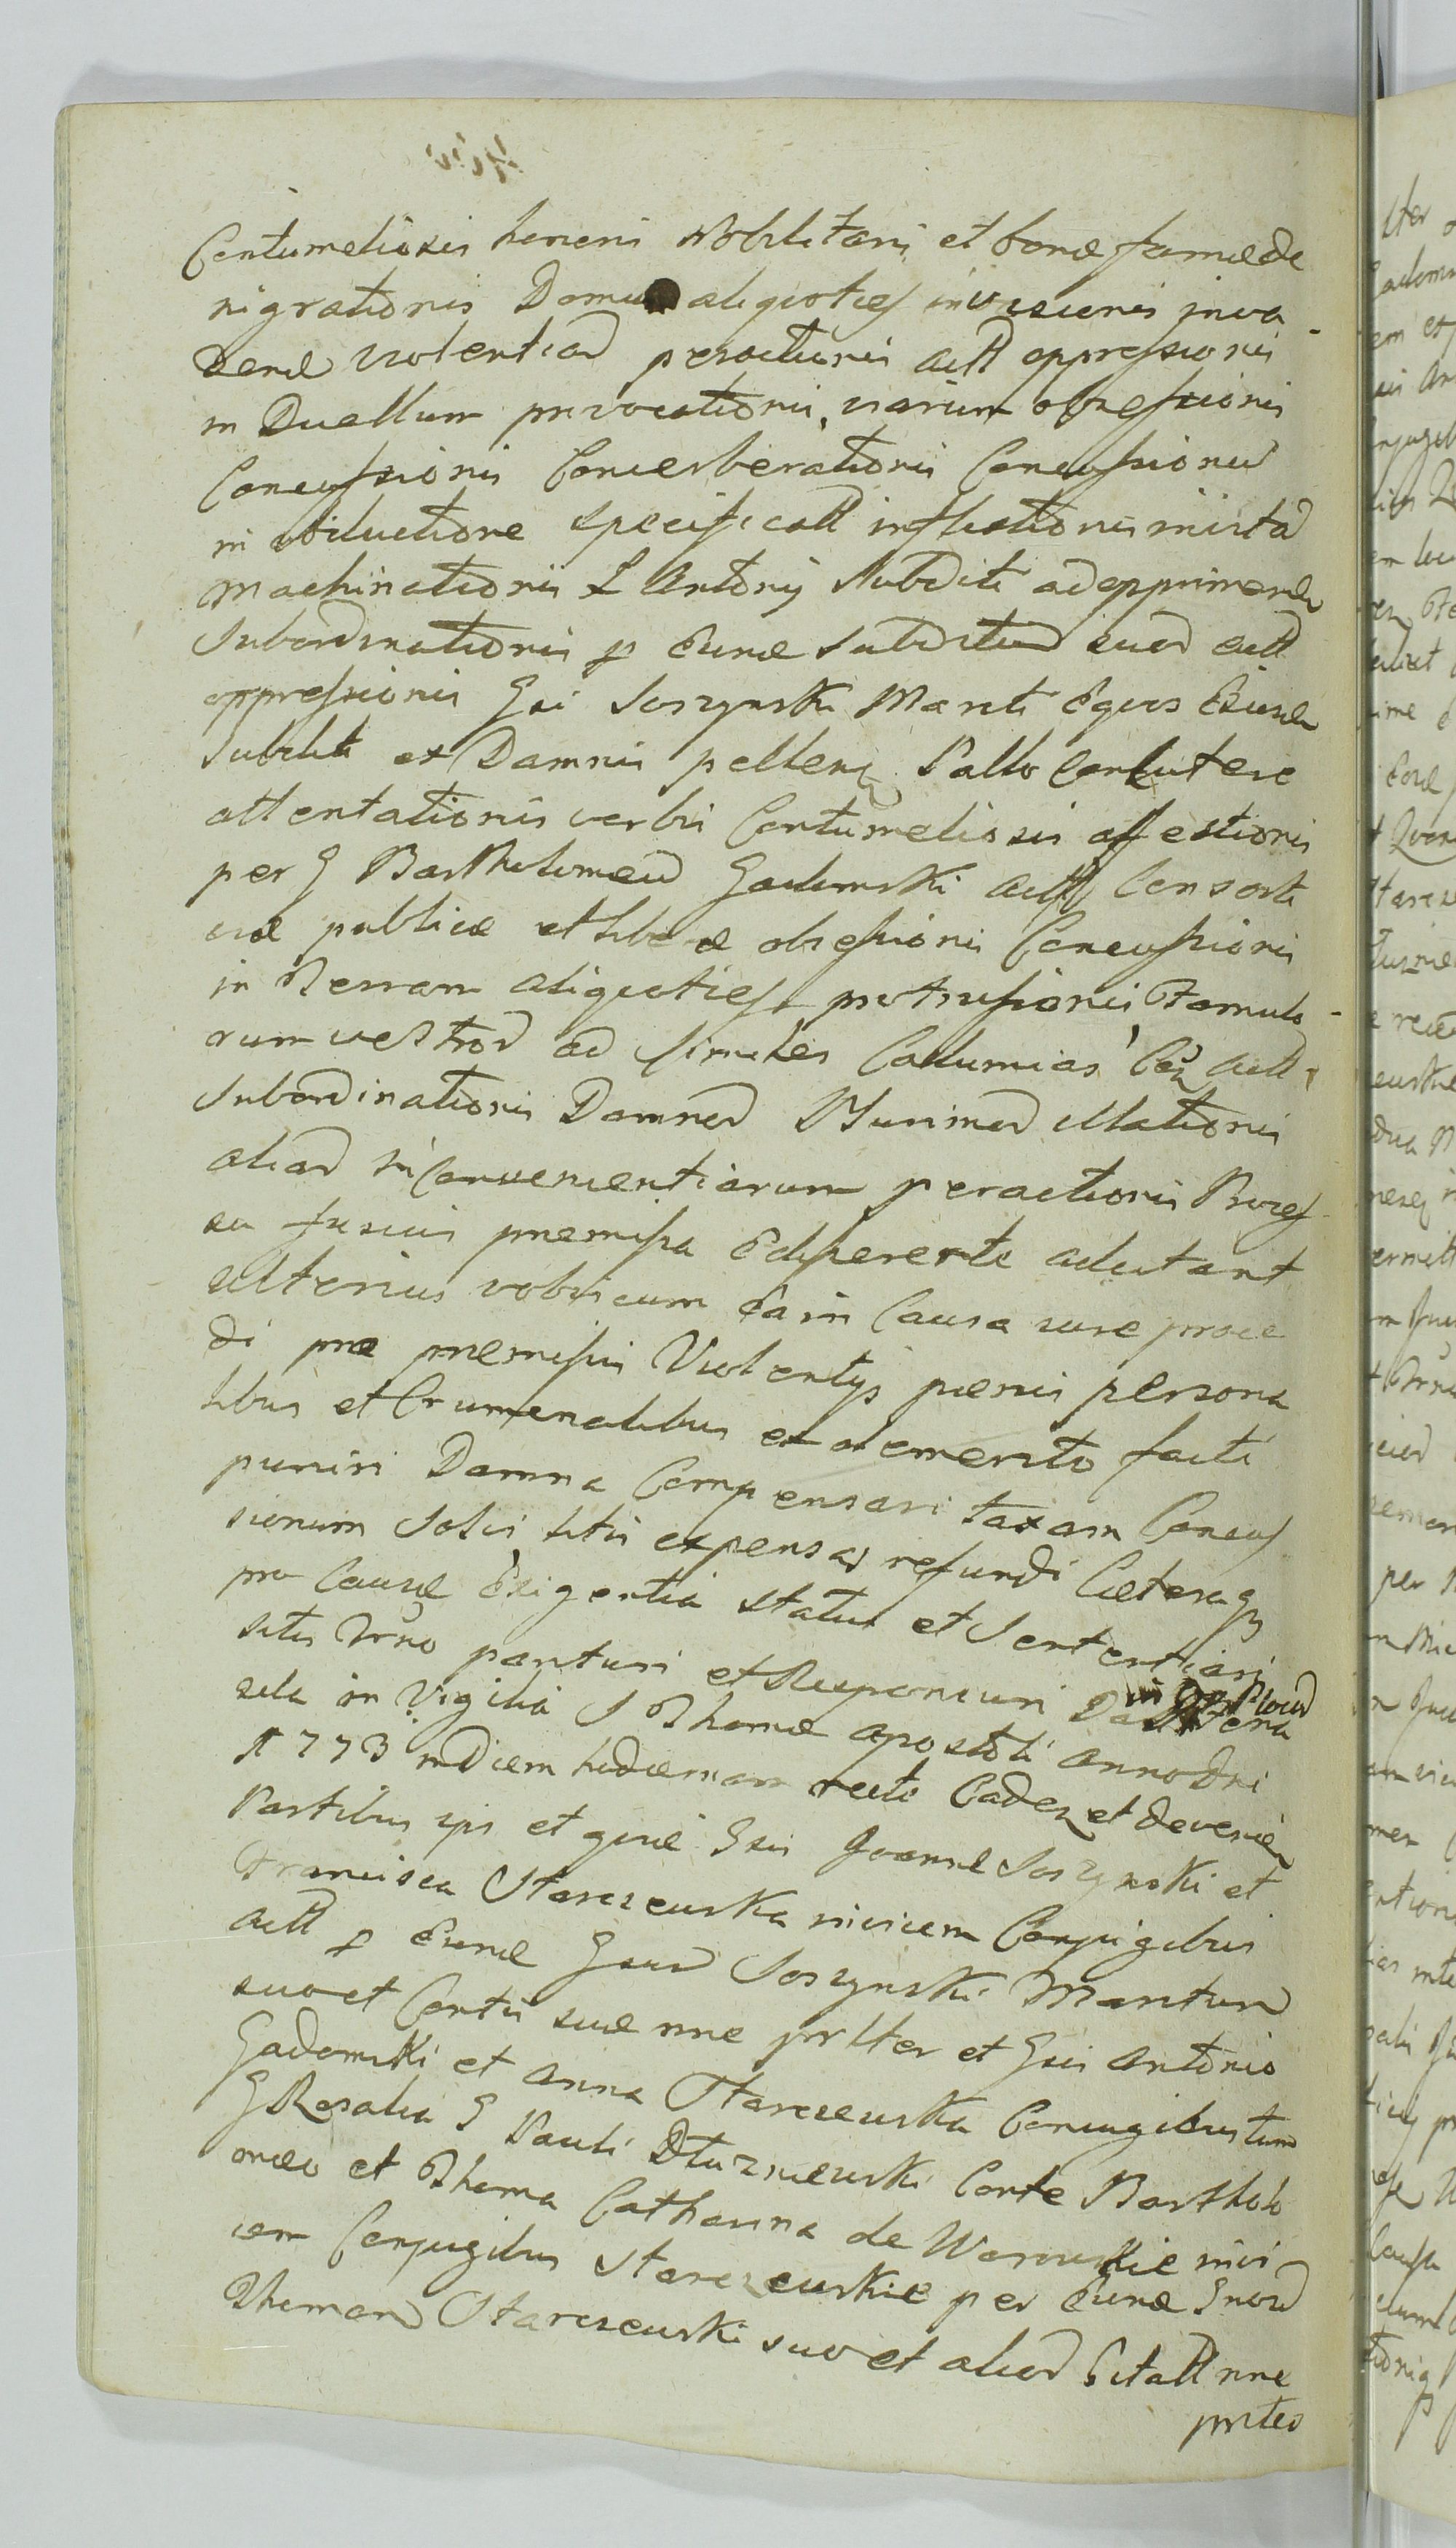 Contumeliosis honoris Nobilitaris et bonæ famæ de
nigrationis Domus aliquoties invasionis inva
dendo violentiarum peractionis actt oppressionis
in Duellum provocationis, viarum obsessionis
Concussionis Converberationis Concussionum
in obductione specificatt inflictionis invicta
Machinationis L Antonij Subditi ad opprimend
Subordinationis p Eund Subditum suum actt
oppressionis Gsi Soszynski Mariti Eques Eiusd
Subditi ex Damnis pellend Pallo Cerlutere
attentationis verbis Contumeliosis affectionis
per G Bartholomeum Gadomski actt Consorti
viæ publicæ et liberæ obsessionis Concussionis
in Terram aliquoties protrusionis Famulo
rum vestrorum ad similes Calumias actt
Subordinationis Damnorum Plurimorum illationis
aliarum inconvenientiarum peractionis Proces
su fusius præmissa Edisserente acclitant
ulterius vobiscum Ea in Causa jure proce
di pro præmissis Violentijs pœnis persona
libus et Crumenalibus ex demerito facti
puniri Damna Compensari taxam Concus
sionum Solvi litis expensas refundi Cæteraq
pro Causæ Exigentia statui et Sententiari
sitis parituri et Responsuri
in Vigilia S Thomæ Apostoli Anno Dni
1773 in Diem hodiernam recte Caden et devenien
Partibus ipsis et quidem Gsis Joanne Soszynski et
Francisca Starczewska invicem Conjugibus
actt p Eund Gsum Soszynski Maritum
suo et Cortis suæ nne prlter et Gsis Antonio
Gadomski et Anna Starczewska Conjugibus tum
G Rosalia G Pauli Dłuzniewski Conte Bartholo
meo et Thoma Catharina de Worowskie invi
cem Conjugibus Starczewskie per Eund Gnorum
Thomam Starczewski suo et aliorum Citatt nne
prlter